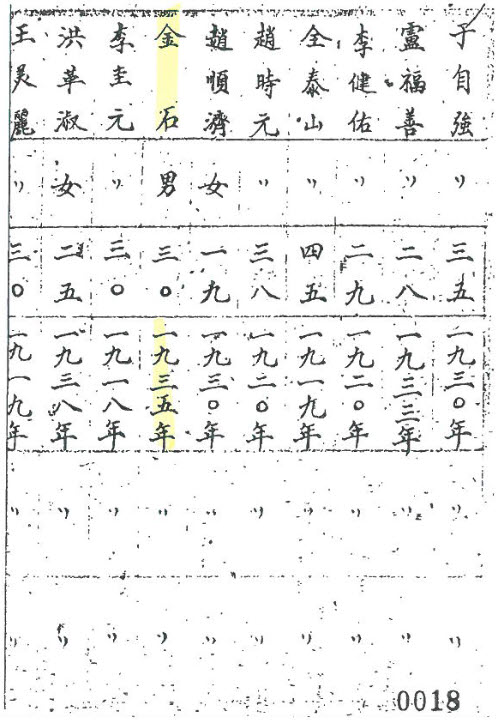 于自強 〃 三五 一九三〇年 〃 〃
盧福善 〃 二八 一九三三年 〃 〃
李健佑 〃 二九 一九二〇年 〃 〃
全泰山 〃 四五 一九一九年 〃 〃
趙時元 〃 三八 一九二〇年 〃 〃
趙順濟 女 一九 一九三〇年 〃 〃
金石 男 三〇 一九三五年 〃 〃
李圭元 〃 三〇 一九一八年 〃 〃
洪革淑 女 二五 一九三八年 〃 〃
〃 三〇 一九一九年 〃 〃
0018